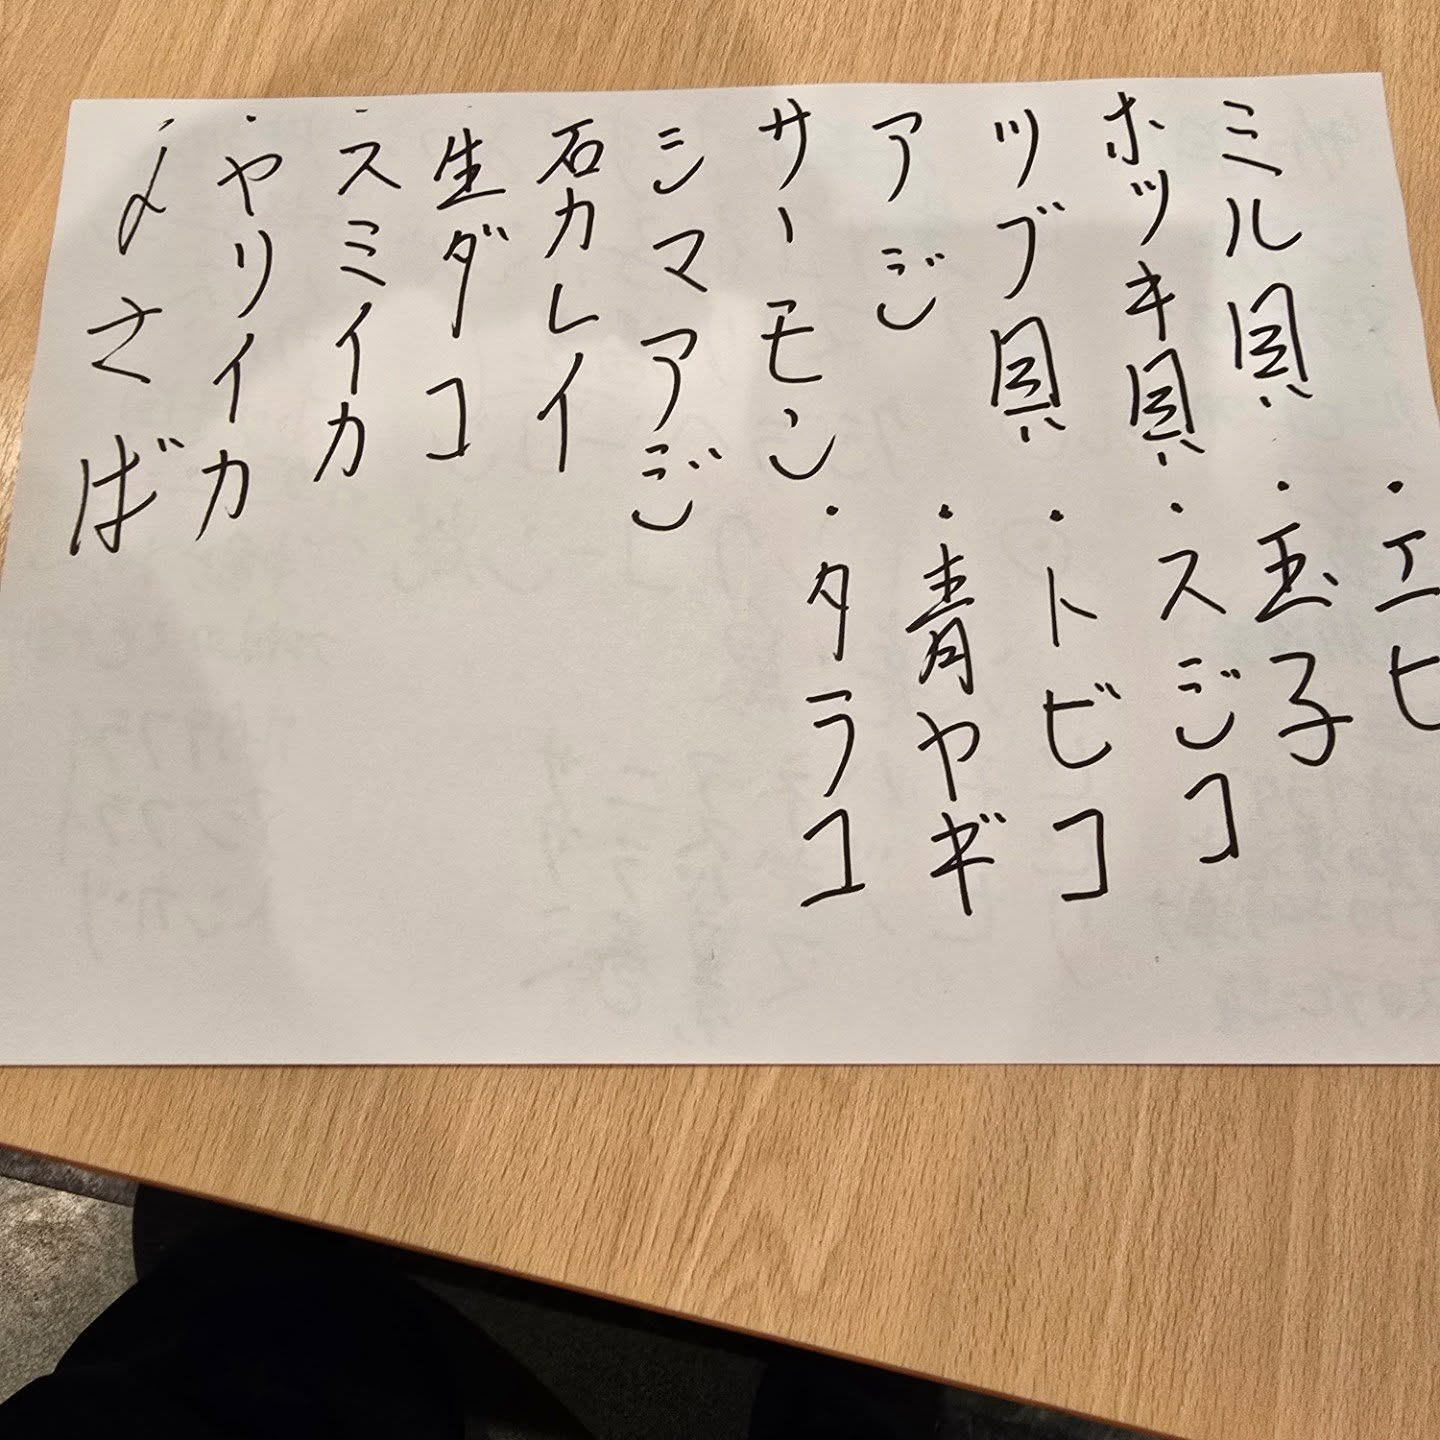 ミル貝
ホッキ貝
ツブ貝
アジ
サーモン
シマアジ
石カレイ
生ダコ
・スミイカ
・ヤリイカ
・〆さば
・エビ
・玉子
・スジコ
・トビコ
・青ヤギ
・タラコ